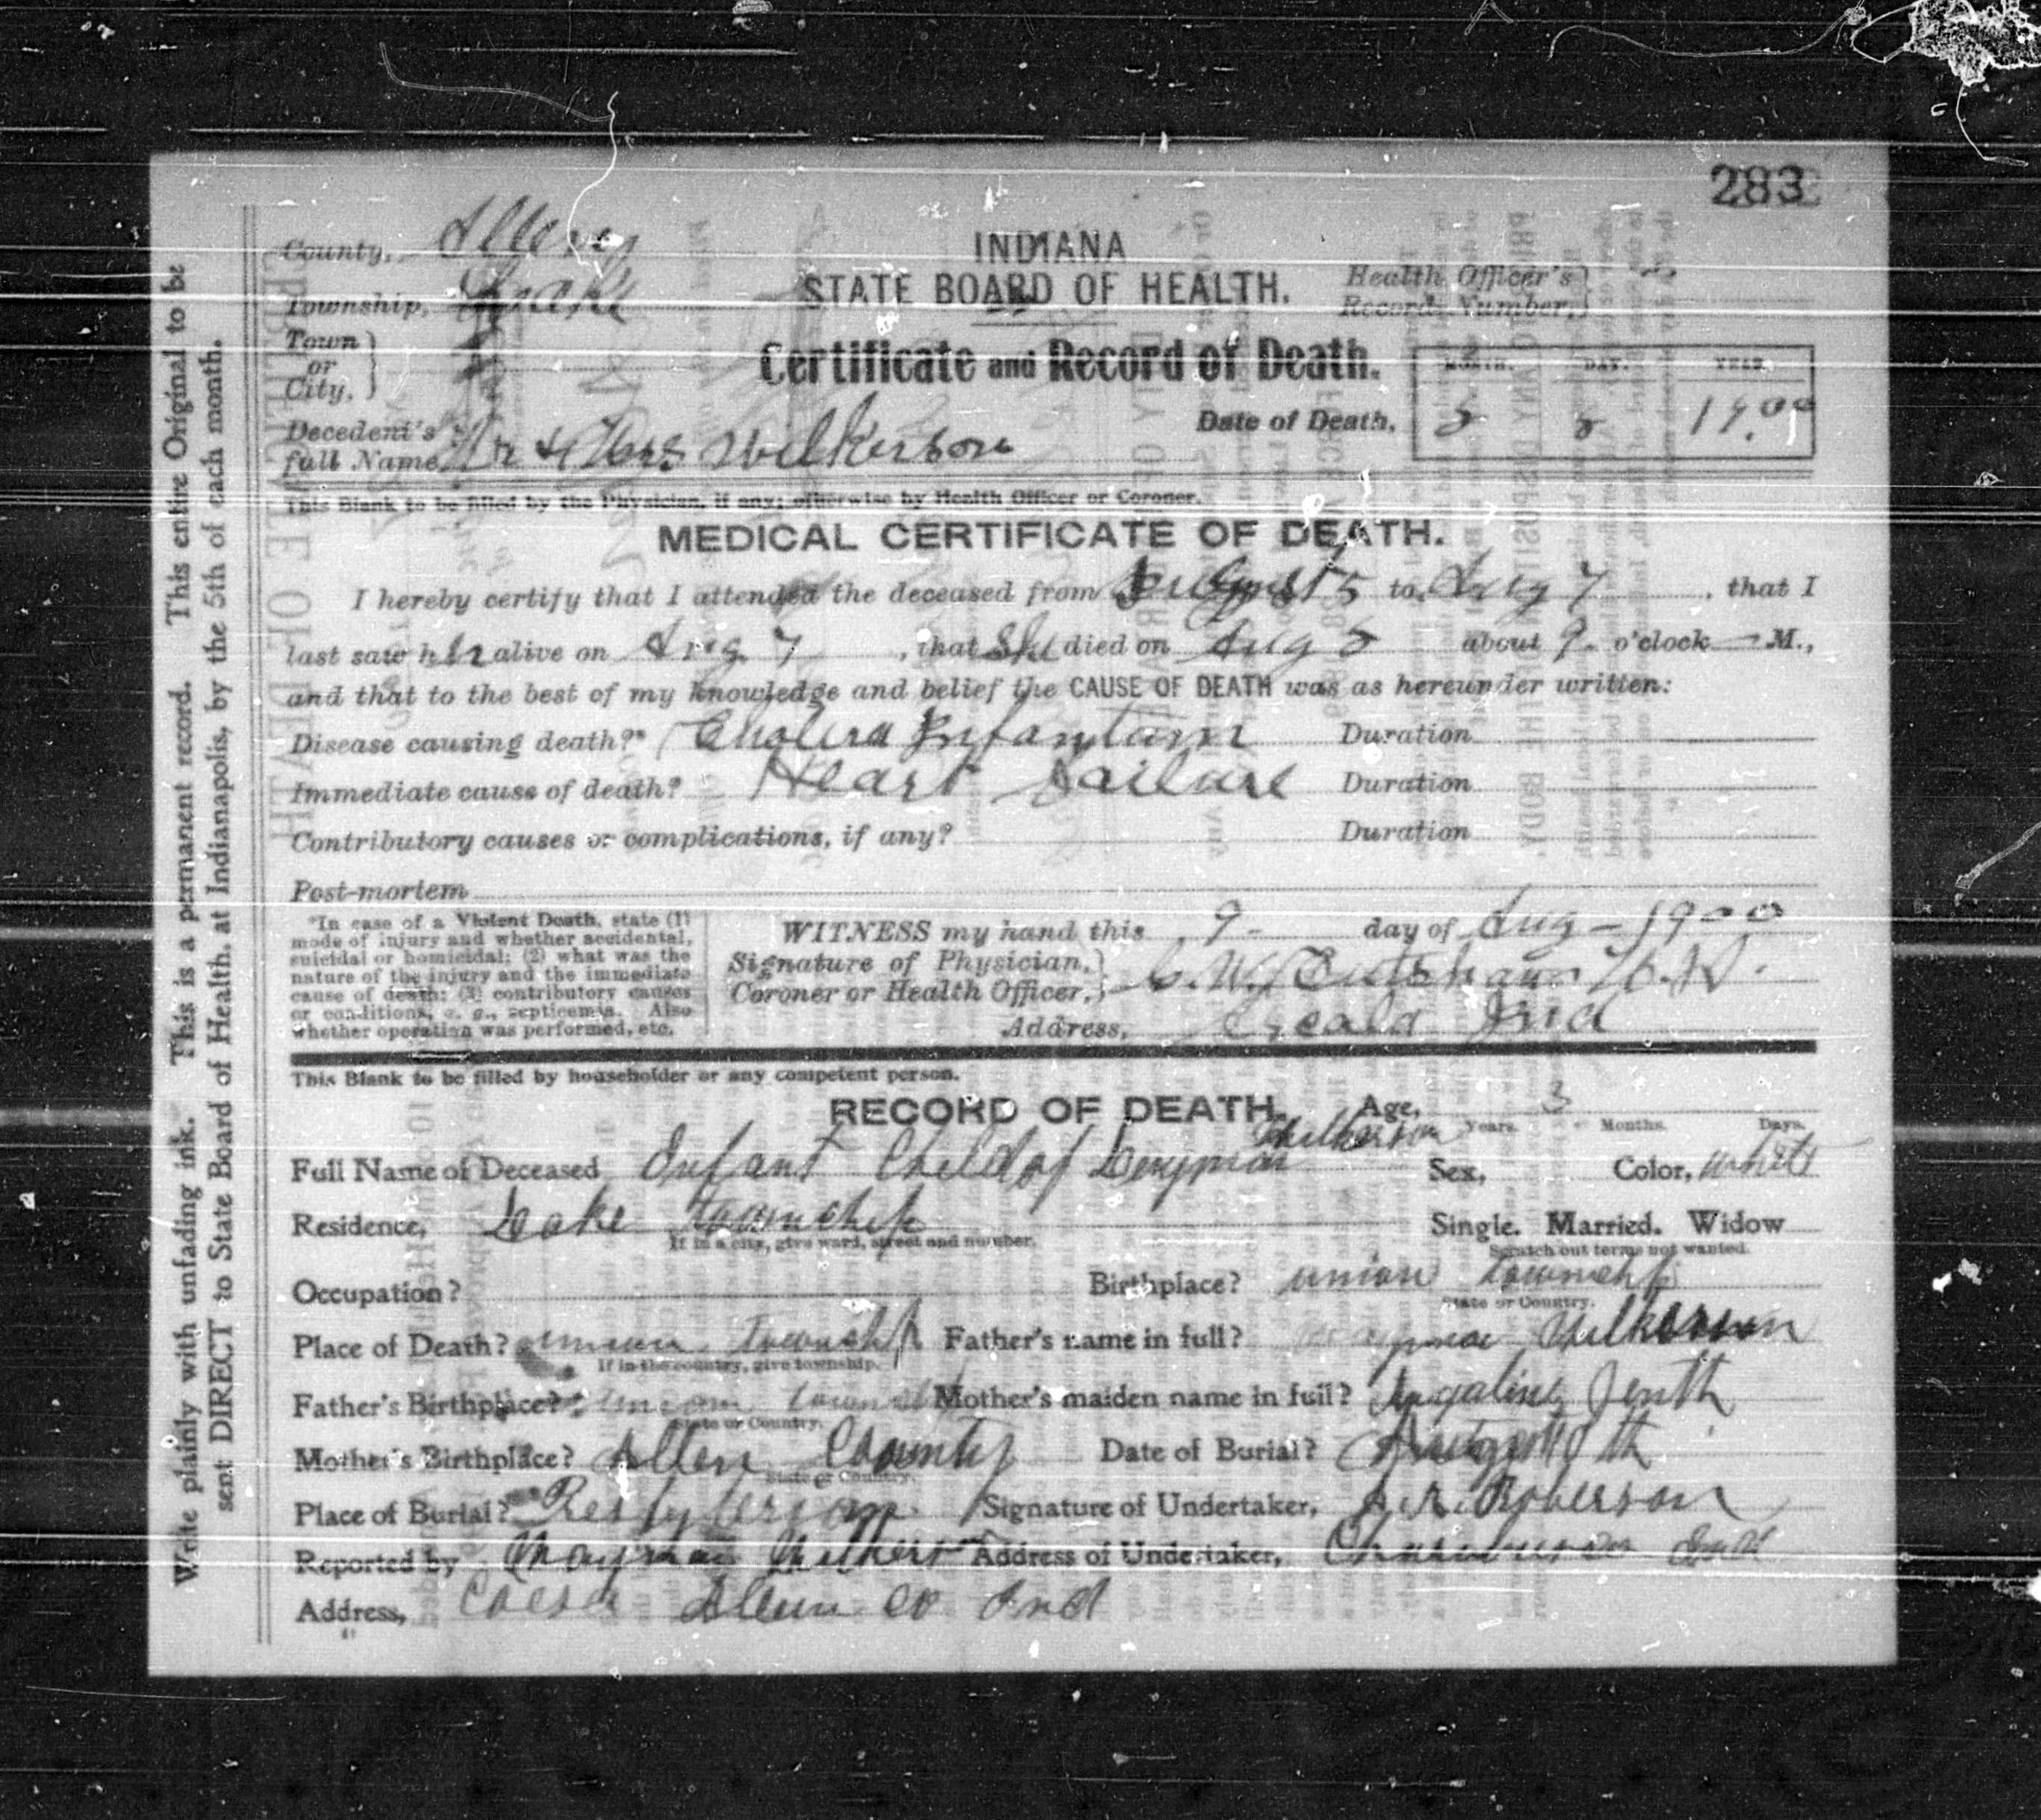 283
County, Allen
INDIANA
Township, Lake
STATE BOARD OF HEALTH.
Health Officer's
Record Number,
Town
or
City.
Certificate and Record of Death.
MONTH. DAY. YEAR.
Decedent's
full Name Mr & Mrs Wilkerson
Date of Death, 8 8 1900
This Blank to be filled by the Physician, if any; otherwise by Health Officer or Coroner.
MEDICAL CERTIFICATE OF DEATH.
I hereby certify that I attended the deceased from August 5 to Aug 7, that I
last saw her alive on Aug 7, that She died on Aug 8 about 9 o'clock M.,
and that to the best of my knowledge and belief the CAUSE OF DEATH was as hereunder written:
Disease causing death?* Cholera Infantum Duration
Immediate cause of death? Heart Failure Duration
Contributory causes or complications, if any? Duration
Post-mortem
*In case of a Violent Death, state (1)
mode of injury and whether accidental,
suicidal or homicidal; (2) what was the
nature of the injury and the immediate
cause of death; (3) contributory causes
or conditions, e. g., septicemia. Also
whether operation was performed, etc.
WITNESS my hand this 9 - day of Aug - 1900
Signature of Physician,
Coroner or Health Officer, C. W. M.D.
Address, Ind
This Blank to be filled by householder or any competent person.
RECORD OF DEATH. Age, 3
Years. Months. Days.
Wilkerson
Full Name of Deceased Infant Child of Sex, Color, white
Residence, Lake township Single. Married. Widow
If in a city, give ward, street and number.
Scratch out terms not wanted.
Occupation? Birthplace? union township
State or Country.
Place of Death? union township Father's name in full? Wilkerson
If in the country, give township.
Father's Birthplace? union township Mother's maiden name in full?
State or Country.
Mother's Birthplace? Allen County Date of Burial?
State or Country.
Place of Burial? Presbyterian Signature of Undertaker, Roberson
Reported by Wilkerson Address of Undertaker, Churubusco Ind
Address, Coesse Allen co Ind
Write plainly with unfading ink. This is a permanent record. This entire Original to be
sent DIRECT to State Board of Health, at Indianapolis, by the 5th of each month.